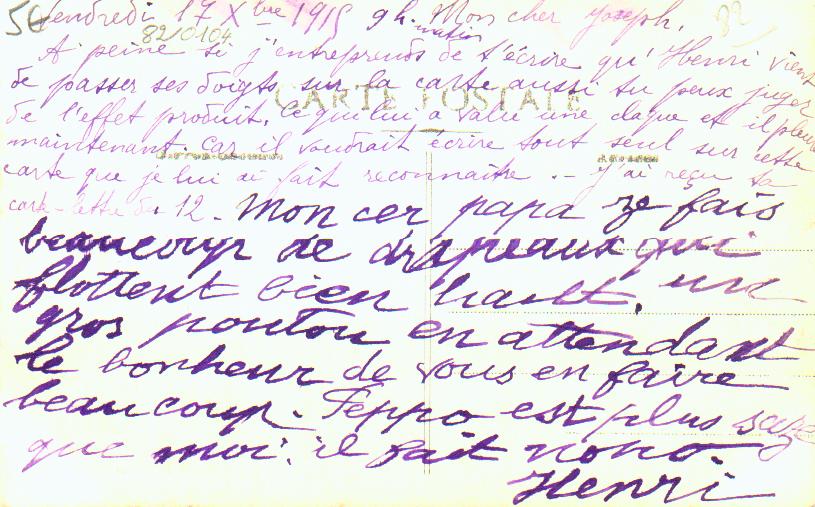 56 Vendredi 17 Xbre 1915 9h. matin Mon cher Joseph, 82
82/0104
A peine si j'entreprends de t'écrire qu'Henri vient
de passer ses doigts sur la carte aussi tu peux juger
CARTE POSTALE
de l'effet produit. Ce qui lui a valu une claque et il pleure
maintenant. Car il voudrait écrire tout seul sur cette
carte que je lui ai fait reconnaître. - J'ai reçu ta
carte-lettre du 12. Mon cer papa ze fais
beaucoup de drapeaux qui
flottent bien haut, un
gros poutou en attendant
le bonheur de vous en faire
beaucoup. Peppo est plus saze
que moi. il fait nono.
Henri